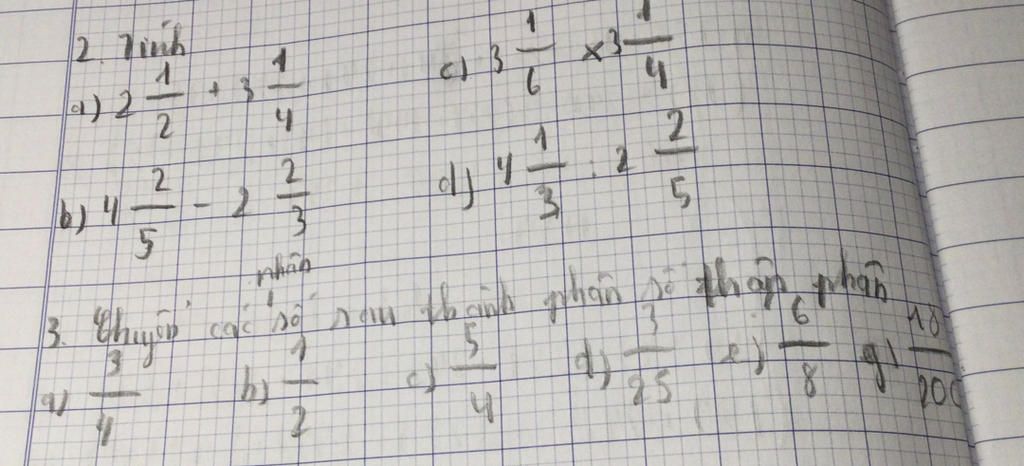 2. Tính
a) 2 1/2 + 3 1/4 c) 3 1/6 x 3 1/4
b) 4 2/5 - 2 2/3 d) 4 1/3 : 2 2/5
nhân
3. Chuyển các số sau thành phân số thập phân
a) 3/4 b) 1/2 c) 5/4 d) 3/25 e) 6/8 g) 18/200